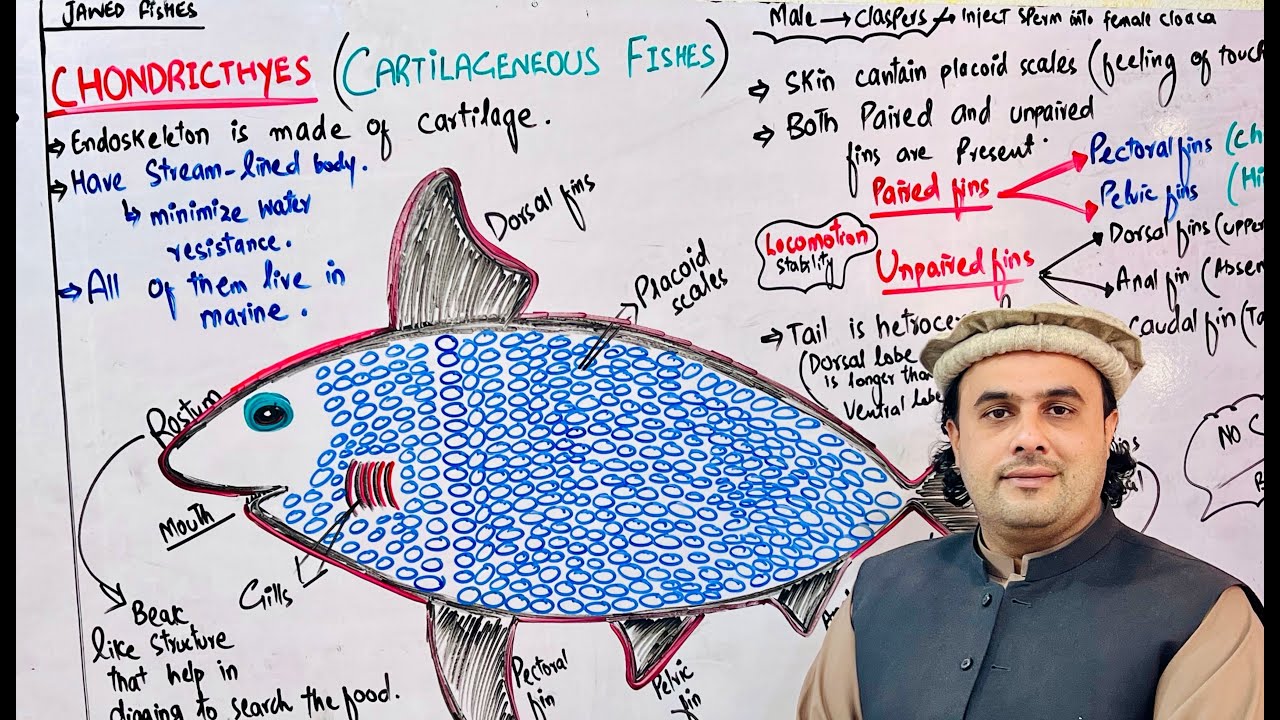 JAWED FISHES
CHONDRICTHYES (CARTILAGENEOUS FISHES)
→ Endoskeleton is made of cartilage.
→ Have Stream-lined body.
↳ minimize water
resistance.
→ All of them live in
marine.
Male → claspers → Inject sperm into female cloaca
→ Skin cantain placoid scales (feeling of touch
→ Both Paired and unpaired
fins are Present.
Paired fins
Pectoral fins
Pelvic fins
Locomotion
stability
Unpaired fins
Dorsal fins (upper
Anal fin
caudal fin
→ Tail is
(Dorsal lobe
is longer than
Ventral lobe
NO
Dorsal fins
Placoid
scales
Rostum
Mouth
Gills
Beak
like structure
that help in
digging to search the food.
Pectoral
fin
Pelvic
fin